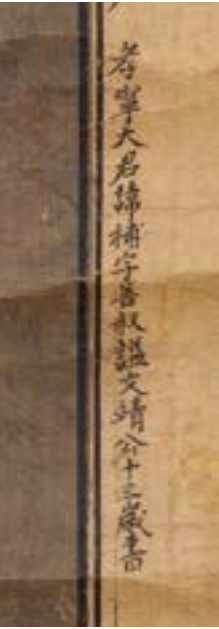 孝寧大君諱補字善叔謚文靖公十三歲書